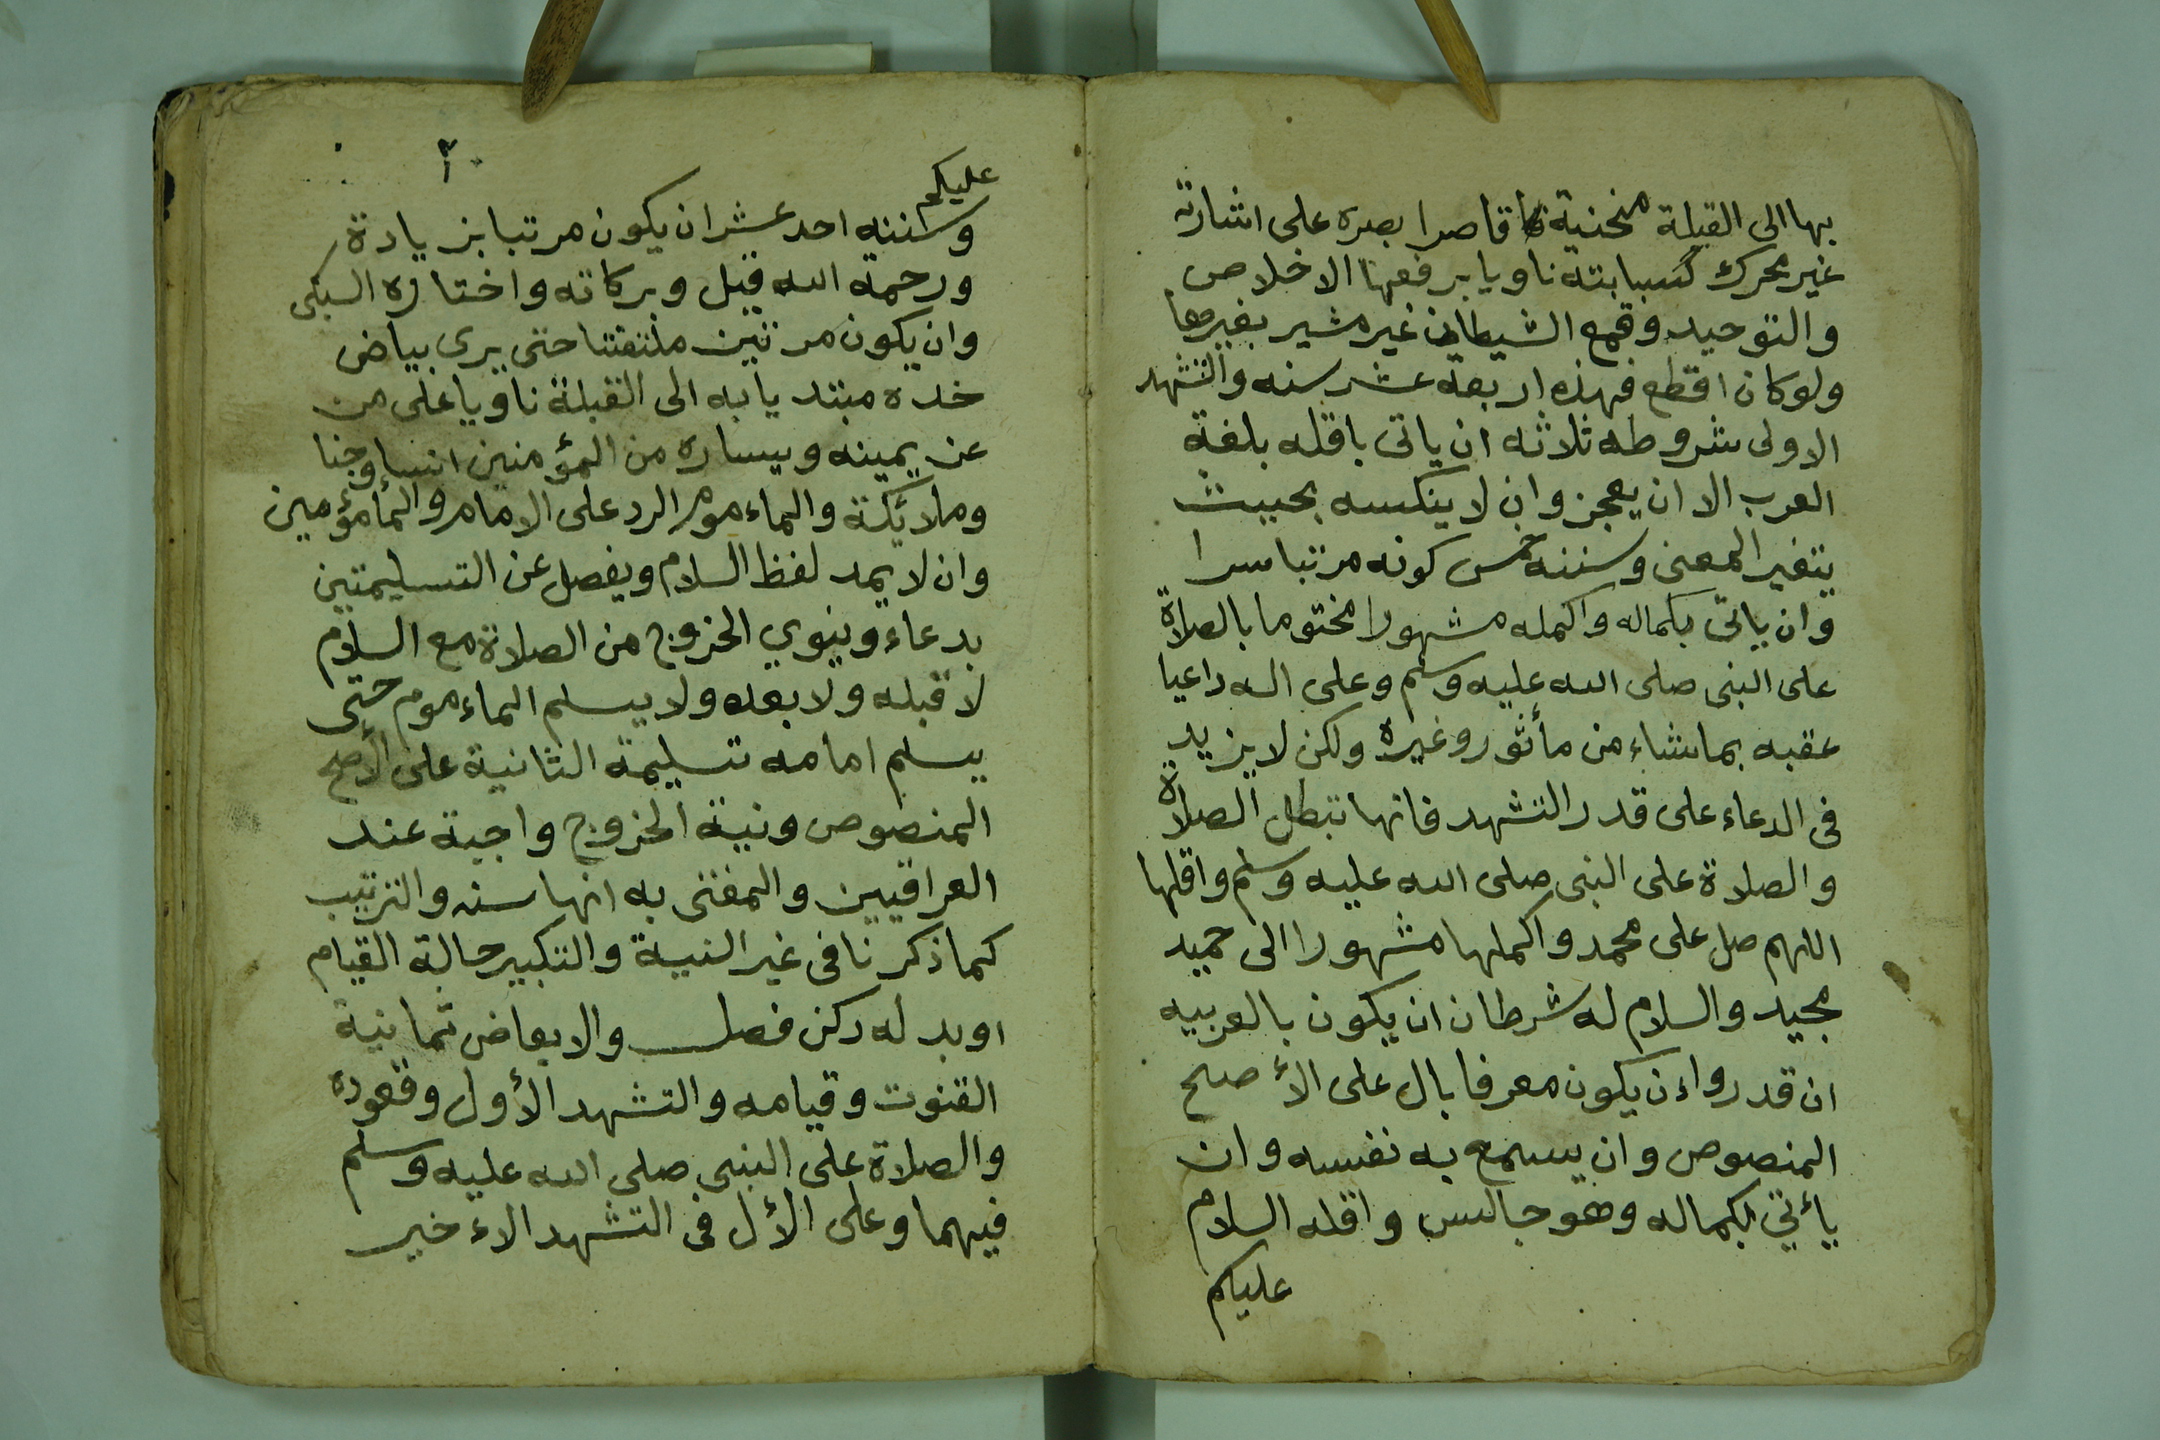 بها الى القبلة منحنية قاصرا بصره على اشارته
غير محرك لسبابته ناويا برفعها الاخلاص
والتوحيد وقمع الشيطان غير مشير بغيرها
ولو كان اقطع فهذه اربعة عشر سنه والتشهد
الاولى شروطه ثلاثه ان ياتى باقله بلغة
العرب الا ان يعجز وان لا ينكسه بحيث
يتغير المعنى وسننه خمس كونه مرتبا سرا
وان ياتى بكماله واكمله مشهورا مختوما بالصلاة
على النبى صلى الله عليه وسلم وعلى اله داعيا
عقبه بما شاء من مأثور وغيره ولكن لا يزيد
فى الدعاء على قدر التشهد فانها تبطل الصلاة
والصلاة على النبى صلى الله عليه وسلم واقلها
اللهم صل على محمد واكملها مشهورا الى حميد
مجيد والسلام له شرطان ان يكون بالعربيه
ان قدر واءن يكون معرفا بال على الأصح
المنصوص وان يسمع به نفسه وان
يأتي بكماله وهو جالس واقله السلام
عليكم
٣٠
عليكم
وسننه احد عشر ان يكون مرتبا بزيادة
ورحمة الله قيل وبركاته واختاره السبكى
وان يكون مرتين ملتفتا حتى يرى بياض
خده مبتديا به الى القبلة ناويا على من
عن يمينه ويساره من المؤمنين انسا وجنا
وملائكة والماءموم الرد على الامام والمأمؤمين
وان لا يمد لفظ السلام ويفصل عن التسليمتين
بدعاء وينوي الخروج من الصلاة مع السلام
لا قبله ولا بعده ولا يسلم الماءموم حتى
يسلم امامه تسليمة الثانية على الأصح
المنصوص ونية الخروج واجبة عند
العراقيين والمفتى به انها سنه والترتيب
كما ذكرنا فى غير النية والتكبير حالة القيام
او بدله ركن فصل والابعاض ثمانية
القنوت وقيامه والتشهد الأول وقعوده
والصلاة على النبى صلى الله عليه وسلم
فيهما وعلى الأل فى التشهد الاءخير